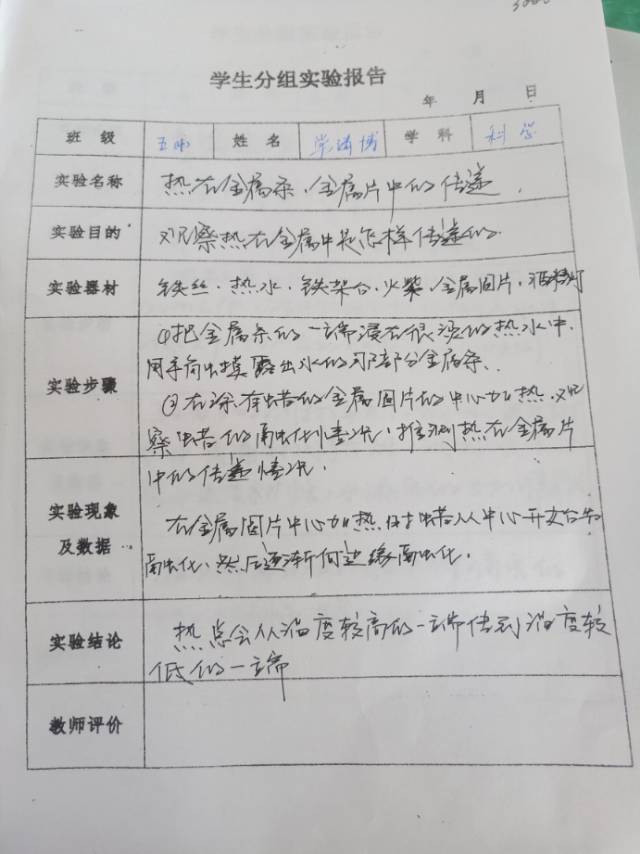 学生分组实验报告
年 月 日
班 级 姓 名 学 科 科学
实验名称 热在金属条、金属片中的传递.
实验目的 观察热在金属中是怎样传递的.
实验器材 铁丝、热水、铁架台、火柴、金属圆片、酒精灯
①把金属条的一端浸在很烫的热水中.
用手触摸露出水的那部分金属条.
实验步骤 ②在涂有蜡的金属圆片的中心加热.观
察蜡的融化情况.推测热在金属片
中的传递情况.
实验现象 在金属圆片中心加热.时蜡从中心开始
及数据 融化、然后逐渐向边缘融化.
实验结论 热总会从温度较高的一端传到温度较
低的一端
教师评价